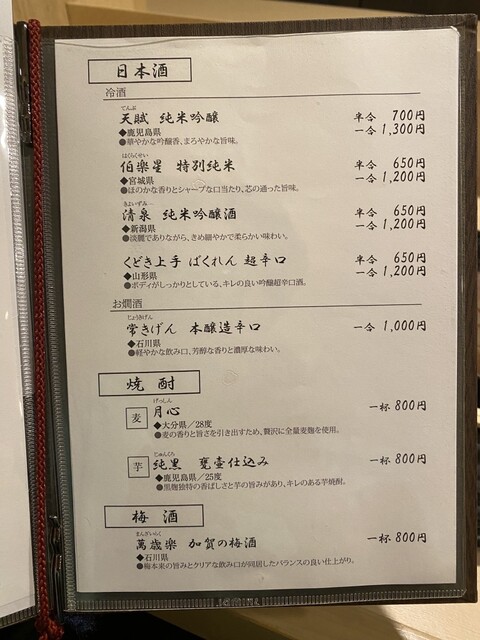 日本酒
冷酒
てんぶ
天賦 純米吟醸 半合 700円
◆鹿児島県 一合 1,300円
●華やかな吟醸香、まろやかな旨味。
はくらくせい
伯楽星 特別純米 半合 650円
◆宮城県 一合 1,200円
●ほのかな香りとシャープな口当たり、芯の通った旨味。
きよいずみ
清泉 純米吟醸酒 半合 650円
◆新潟県 一合 1,200円
●淡麗でありながら、きめ細やかで柔らかい味わい。
くどき上手 ばくれん 超辛口 半合 650円
◆山形県 一合 1,200円
●ボディがしっかりとしている、キレの良い吟醸超辛口酒。
お燗酒
じょうきげん
常きげん 本醸造辛口 一合 1,000円
◆石川県
●軽やかな飲み口、芳醇な香りと濃厚な味わい。
焼酎
げっしん
麦 月心 一杯 800円
◆大分県/28度
●麦の香りと旨さを引き出すため、贅沢に全量麦麹を使用。
じゅんくろ
芋 純黒 甕壷仕込み 一杯 800円
◆鹿児島県/25度
●黒麹独特の香ばしさと芋の旨みがあり、キレのある芋焼酎。
梅酒
まんざいらく
萬歳楽 加賀の梅酒 一杯 800円
◆石川県
●梅本来の旨みとクリアな飲み口が同居したバランスの良い仕上がり。